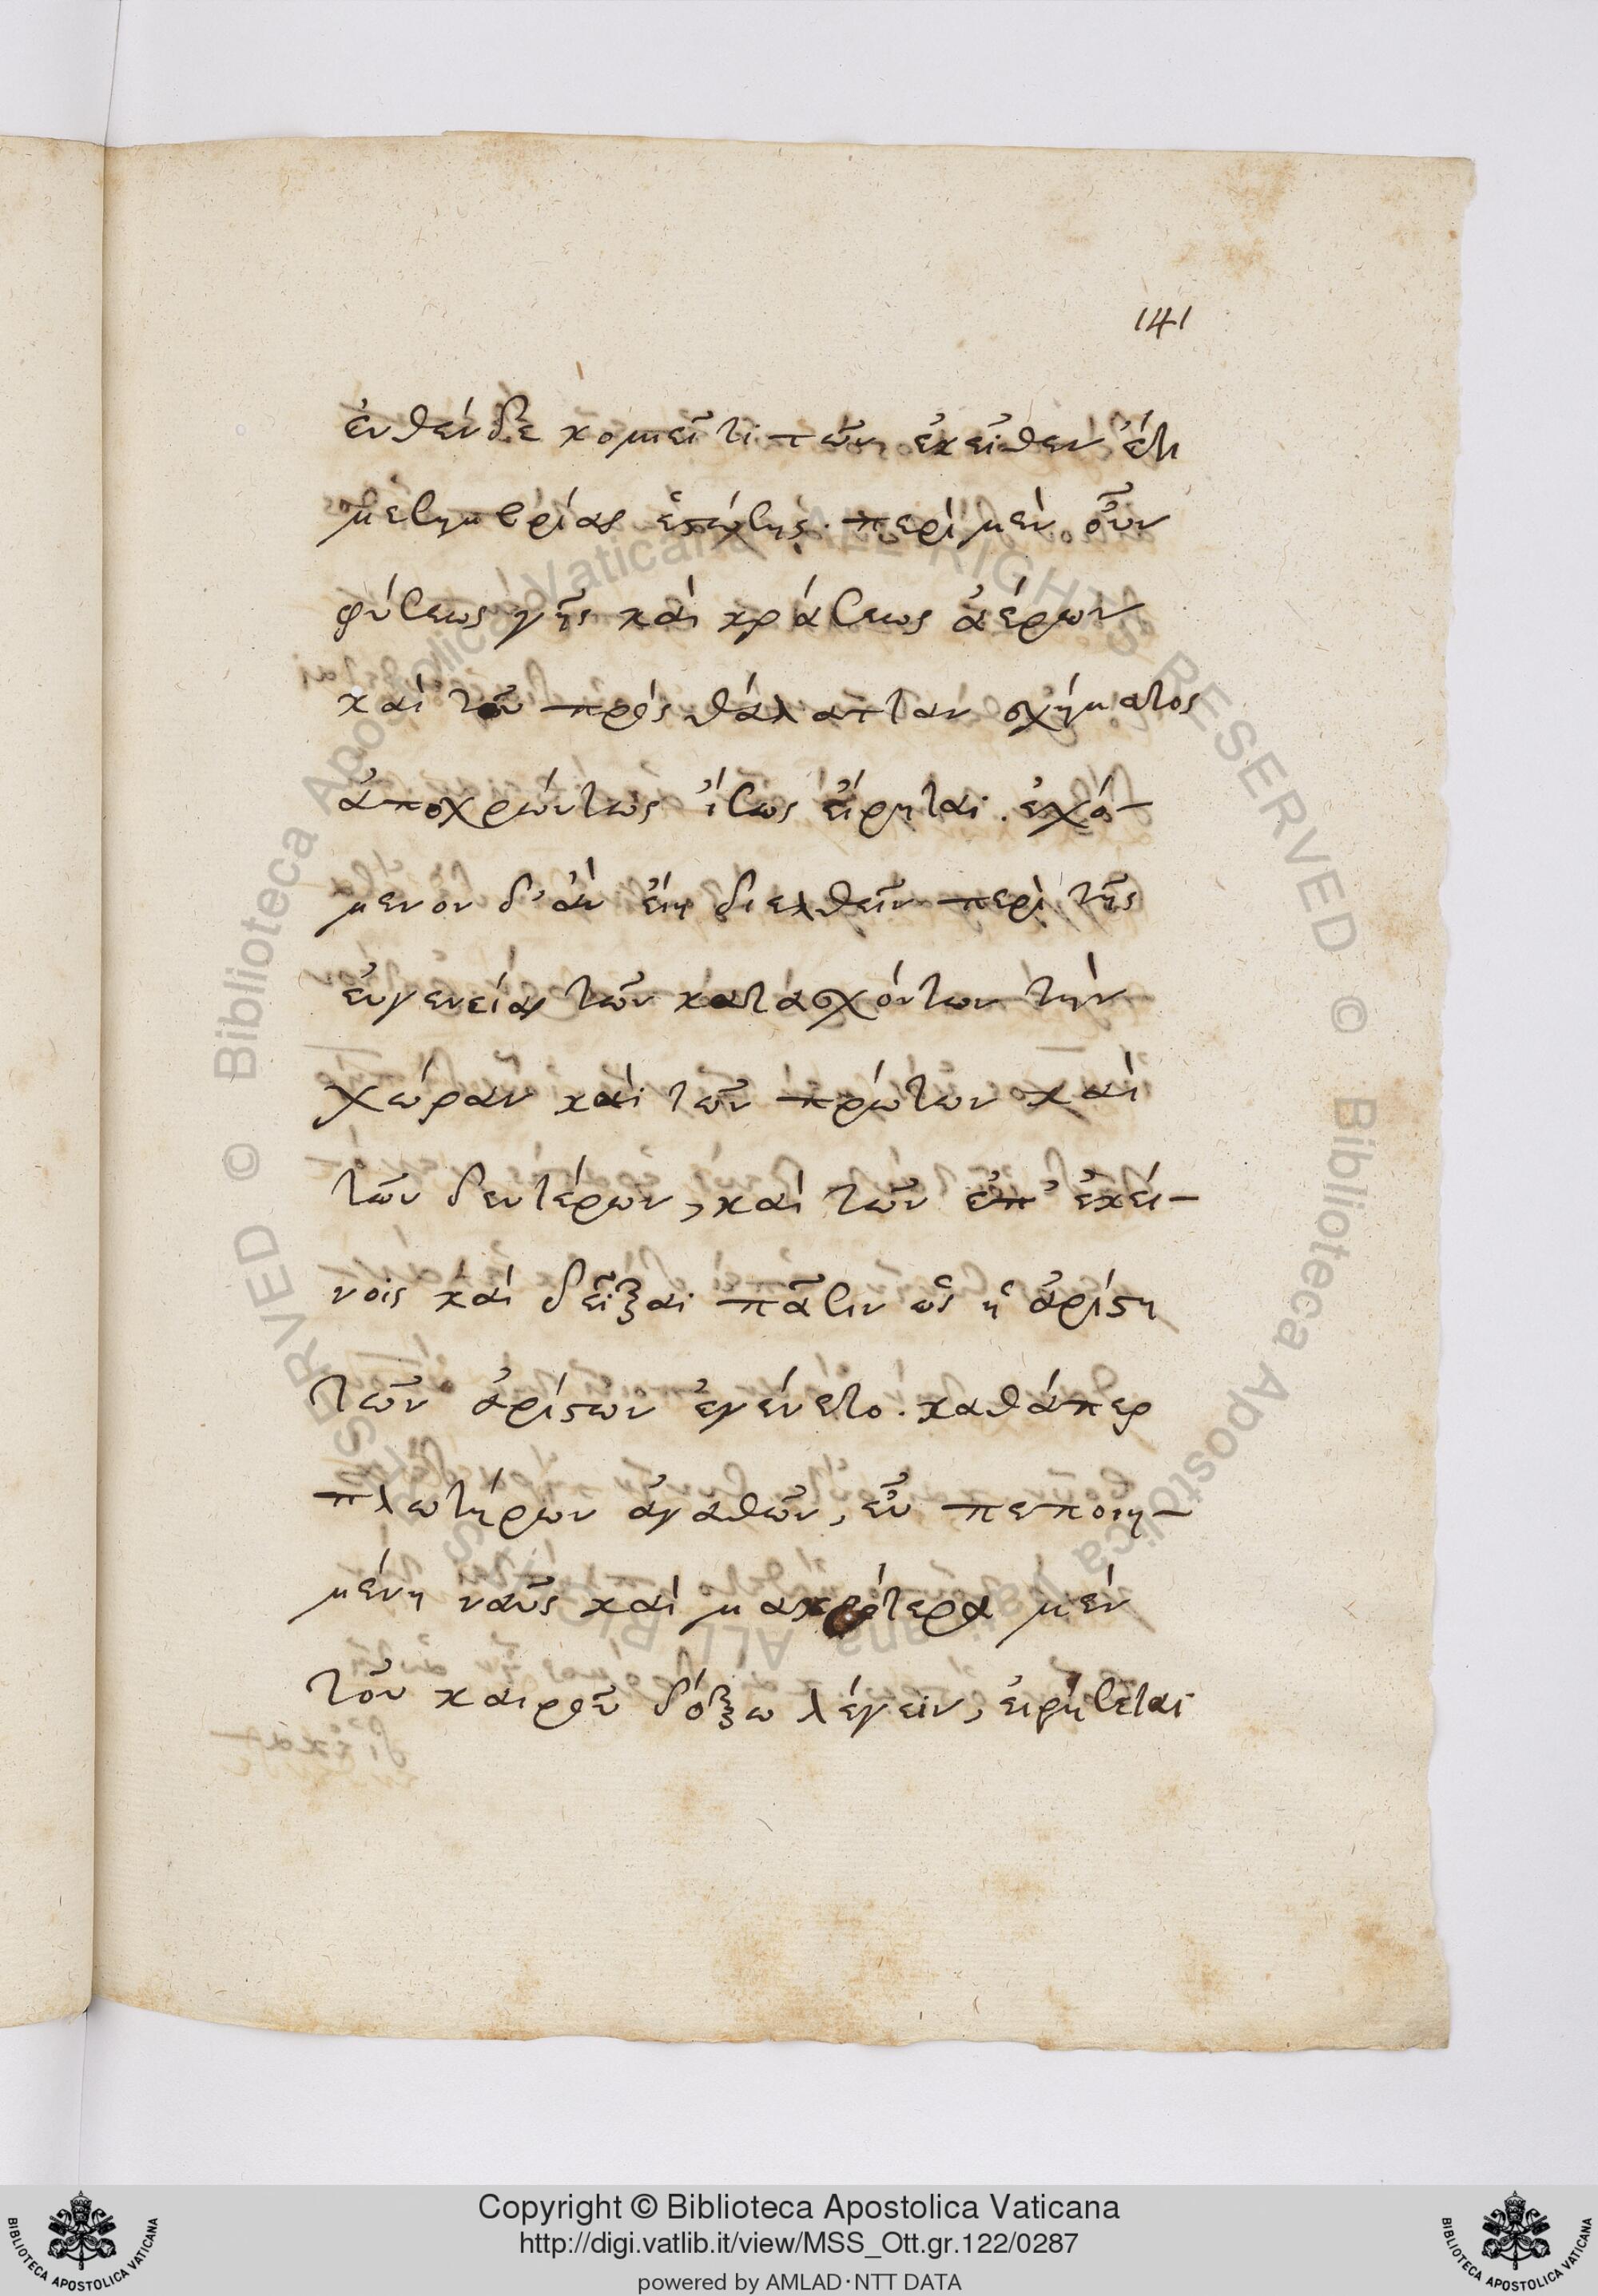 141
ἐνθένδε κομιεῖ τι τῶν ἐκεῖθεν ἔτι
μεσημβρίας ἑστώσης. περὶ μὲν οὖν
φύσεως γῆς καὶ κράσεως ἀέρων
καὶ τοῦ πρὸς θάλατταν σχήματος
ἀποχρώντως ἴσως εἴρηται. ἐχό-
μενον δ' ἂν εἴη διελθεῖν περὶ τῆς
εὐγενείας τῶν κατασχόντων τὴν
χώραν καὶ τῶν πρώτων καὶ
τῶν δευτέρων, καὶ τῶν ἐπ' ἐκεί-
νοις καὶ δεῖξαι πᾶσιν ὡς ἡ ἀρίστη
τῶν ἀρίστων ἐγένετο. καθάπερ
πλωτήρων ἀγαθῶν, εὖ πεποιη-
μένη ναῦς καὶ μακρότερα μὲν
τοῦ καιροῦ δόξω λέγειν, εἰρήσεται
© Biblioteca Apostolica Vaticana ALL RIGHTS RESERVED © Biblioteca Apostolica Vaticana ALL RIGHTS RESERVED
Copyright © Biblioteca Apostolica Vaticana
http://digi.vatlib.it/view/MSS_Ott.gr.122/0287
powered by AMLAD·NTT DATA
BIBLIOTECA APOSTOLICA VATICANA
BIBLIOTECA APOSTOLICA VATICANA